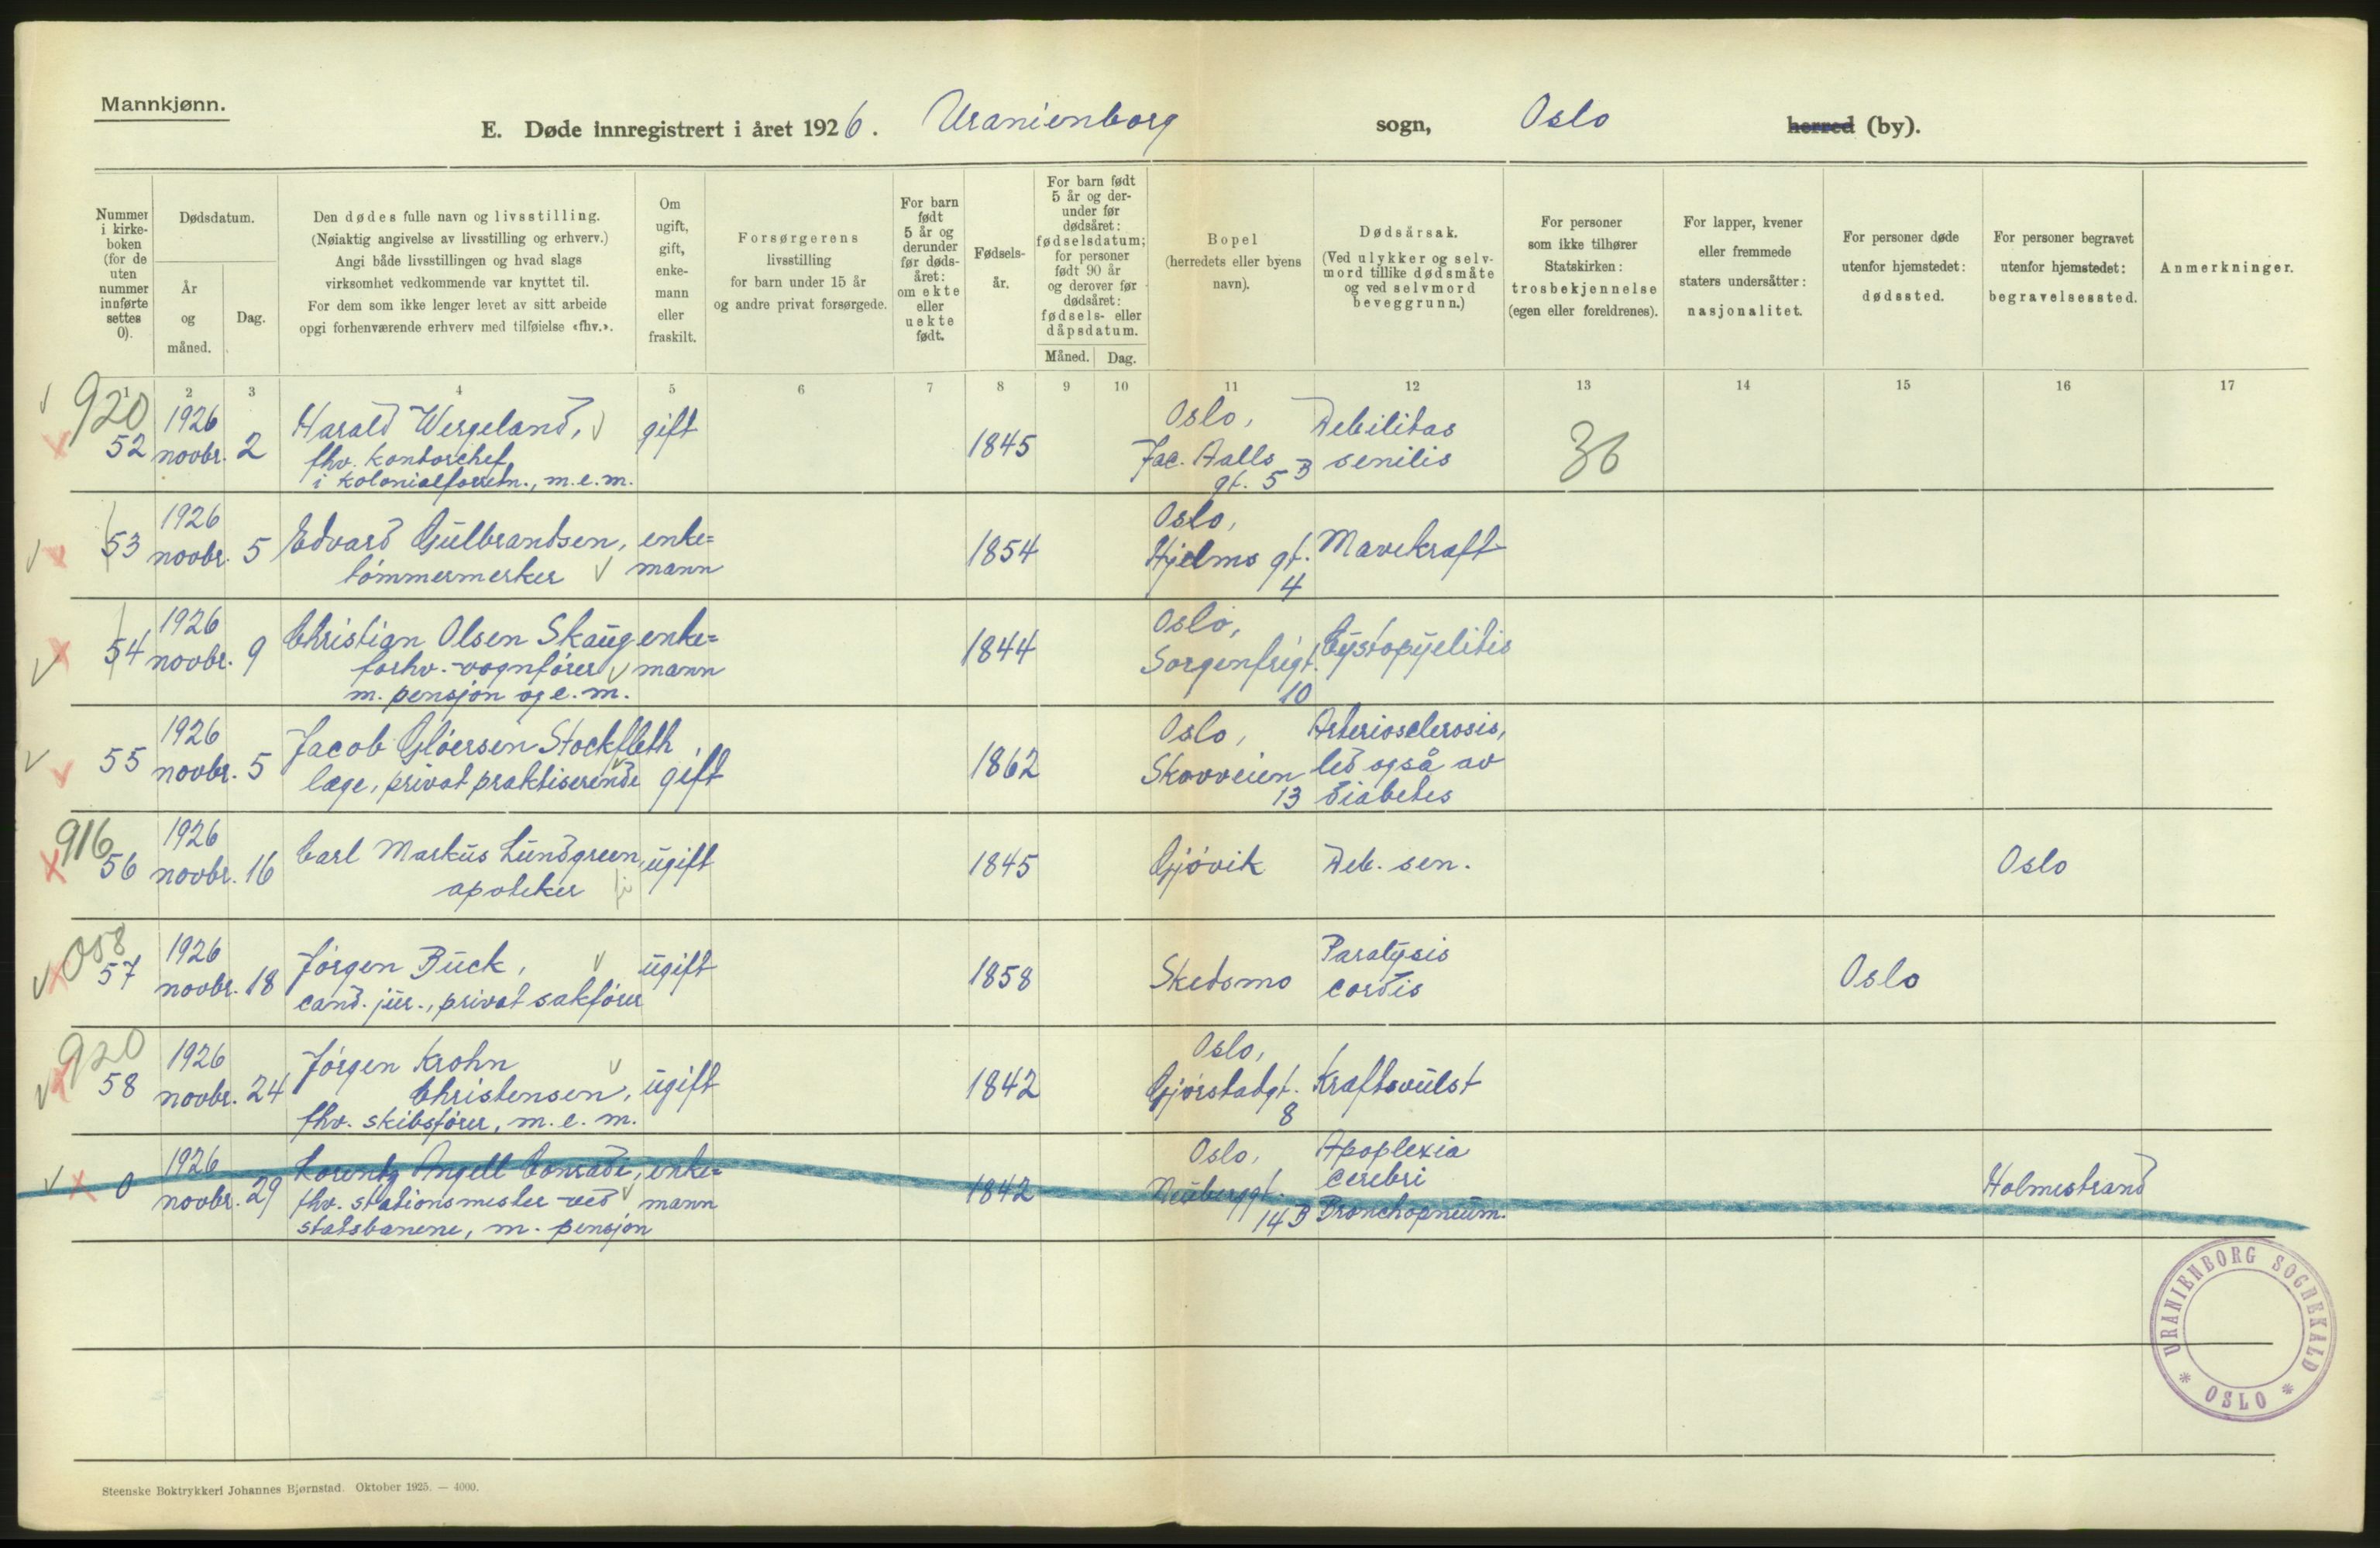 Mannkjønn.
E. Døde innregistrert i året 1926. Uranienborg sogn, Oslo herred (by).
Nummer i kirke-boken (for de uten nummer innførte settes 0).
Dødsdatum.
År og måned.
Dag.
Den dødes fulle navn og livsstilling.
(Nøiaktig angivelse av livsstilling og erhverv.)
Angi både livsstillingen og hvad slags
virksomhet vedkommende var knyttet til.
For dem som ikke lenger levet av sitt arbeide
opgi forhenværende erhverv med tilføielse «fhv.».
Om ugift, gift, enke-mann eller fraskilt.
Forsørgerens
livsstilling
for barn under 15 år
og andre privat forsørgede.
For barn født 5 år og derunder før døds-året: om ekte eller uekte født.
Fødsels-år.
For barn født 5 år og der-under før dødsåret: fødselsdatum; for personer født 90 år og derover før dødsåret: fødsels- eller dåpsdatum.
Måned. Dag.
Bopel
(herredets eller byens
navn).
Dødsårsak.
(Ved ulykker og selv-
mord tillike dødsmåte
og ved selvmord
beveggrunn.)
For personer
som ikke tilhører
Statskirken:
trosbekjennelse
(egen eller foreldrenes).
For lapper, kvener
eller fremmede
staters undersåtter:
nasjonalitet.
For personer døde
utenfor hjemstedet:
dødssted.
For personer begravet
utenfor hjemstedet:
begravelsessted.
Anmerkninger.
1 2 3 4 5 6 7 8 9 10 11 12 13 14 15 16 17
920
52 1926 novbr. 2 Harald Wergeland, gift 1845 Oslo, Debilitas 36
fhv. kontorchef Jac. Aalls senilis
i kolonialforretn., m.e.m. gt. 5 B
53 1926 novbr. 5 Edvard Gulbrandsen, enke= 1854 Oslo, Mavekræft
tømmermerker mann Hjelms gt.
4
54 1926 novbr. 9 Christian Olsen Skaug enke= 1844 Oslo, Cystopyelitis
forhv. vognfører mann Sorgenfrigt.
m. pensjon og e. m. 10
55 1926 novbr. 5 Jacob Gløersen Stockfleth, 1862 Oslo, Arteriosclerosis,
læge, privat praktiserende gift Skovveien led også av
13 diabetes
916
56 1926 novbr. 16 Carl Markus Lundgreen, ugift 1845 Gjøvik Deb. sen. Oslo
apoteker
058
57 1926 novbr. 18 Jørgen Buck, ugift 1858 Skedsmo Paralysis Oslo
cand. jur., privat sakfører cordis
920
58 1926 novbr. 24 Jørgen Krohn 1842 Oslo, Kræftsvulst
Christensen, ugift Gjørstadgt.
fhv. skibsfører, m. e. m. 8
0 1926 novbr. 29 Lorentz Angell Conradi, enke= 1842 Oslo, Apoplexia Holmestrand
fhv. stationsmester ved mann Neuberggt. cerebri
statsbanene, m. pensjon 14 B Bronchopneum.
URANIENBORG SOGNEKALD
* OSLO *
Steenske Boktrykkeri Johannes Bjørnstad. Oktober 1925. — 4000.